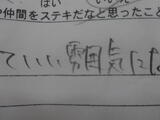 はい
仲間をステキだなと思ったこと
ていい雰囲気にな